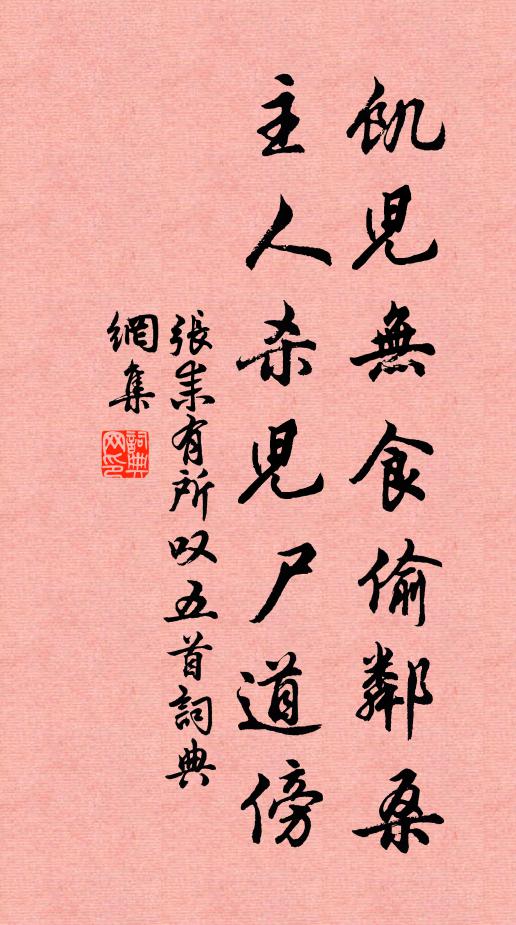 飢兒無食偷鄰桑
主人杀兒尸道傍
張耒有所叹五首詞典
網集
詞典
网印